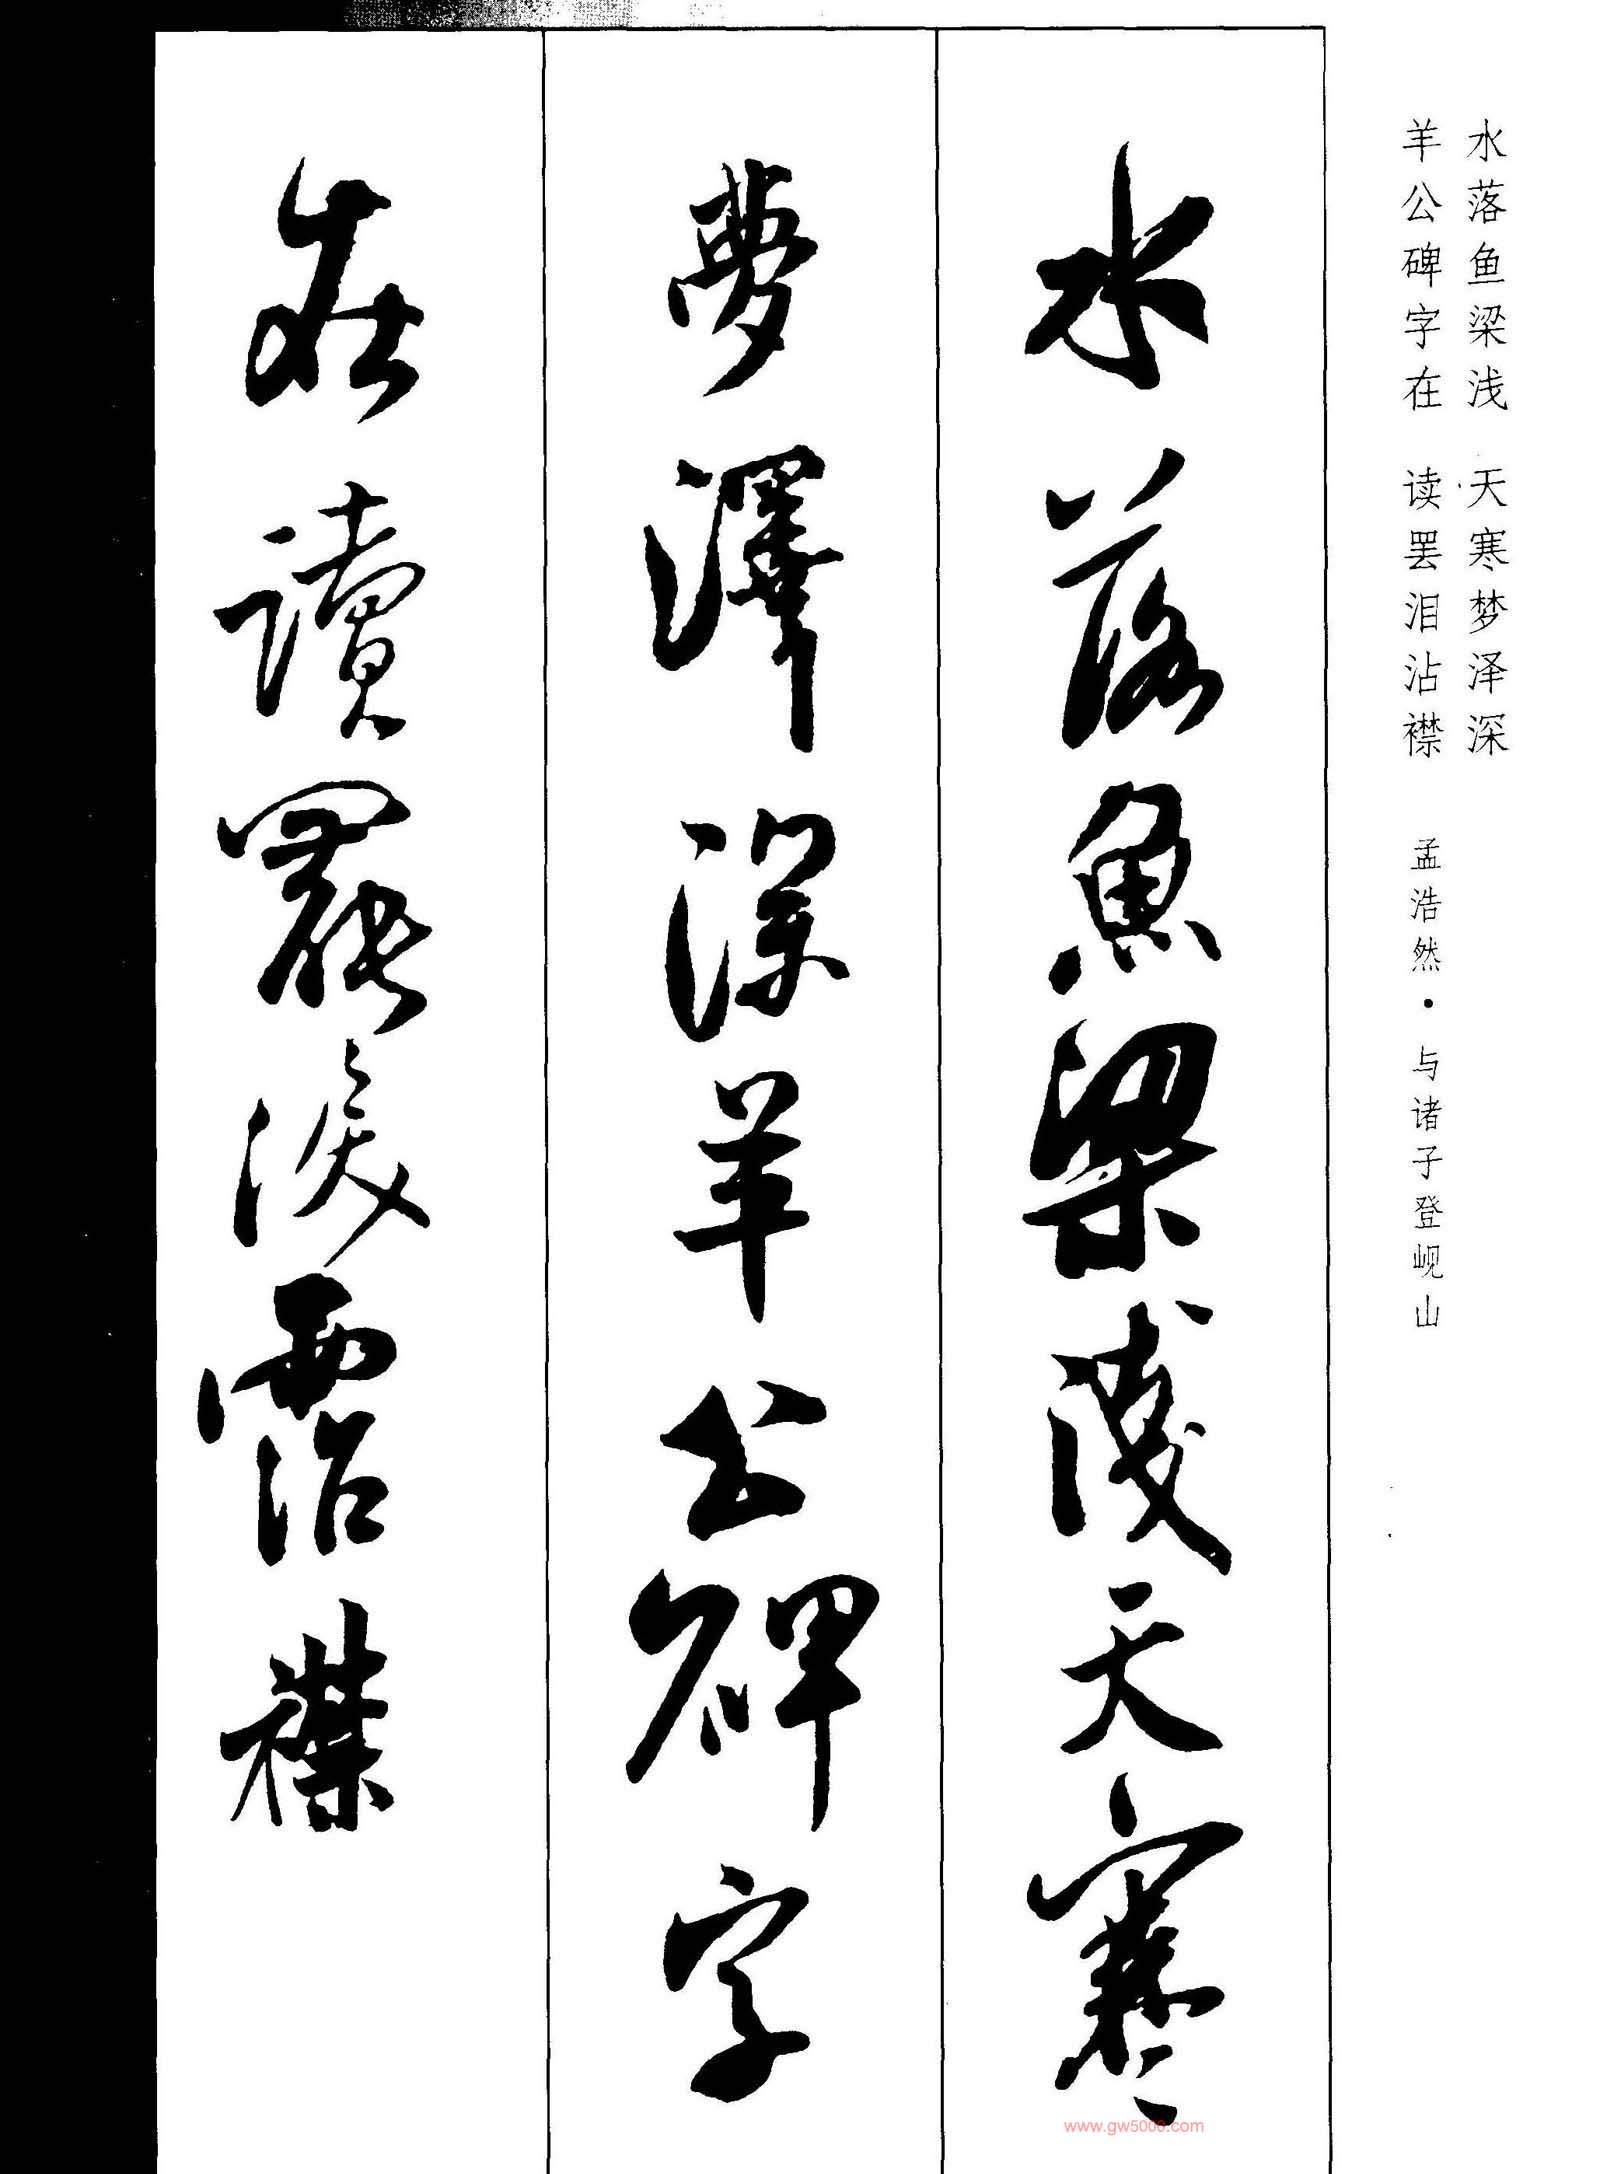 水落鱼梁浅 天寒梦泽深
羊公碑字在 读罢泪沾襟 孟浩然·与诸子登岘山
水落魚梁淺天寒
夢澤深羊公碑字
在讀罷淚霑襟
www.gw5000.com